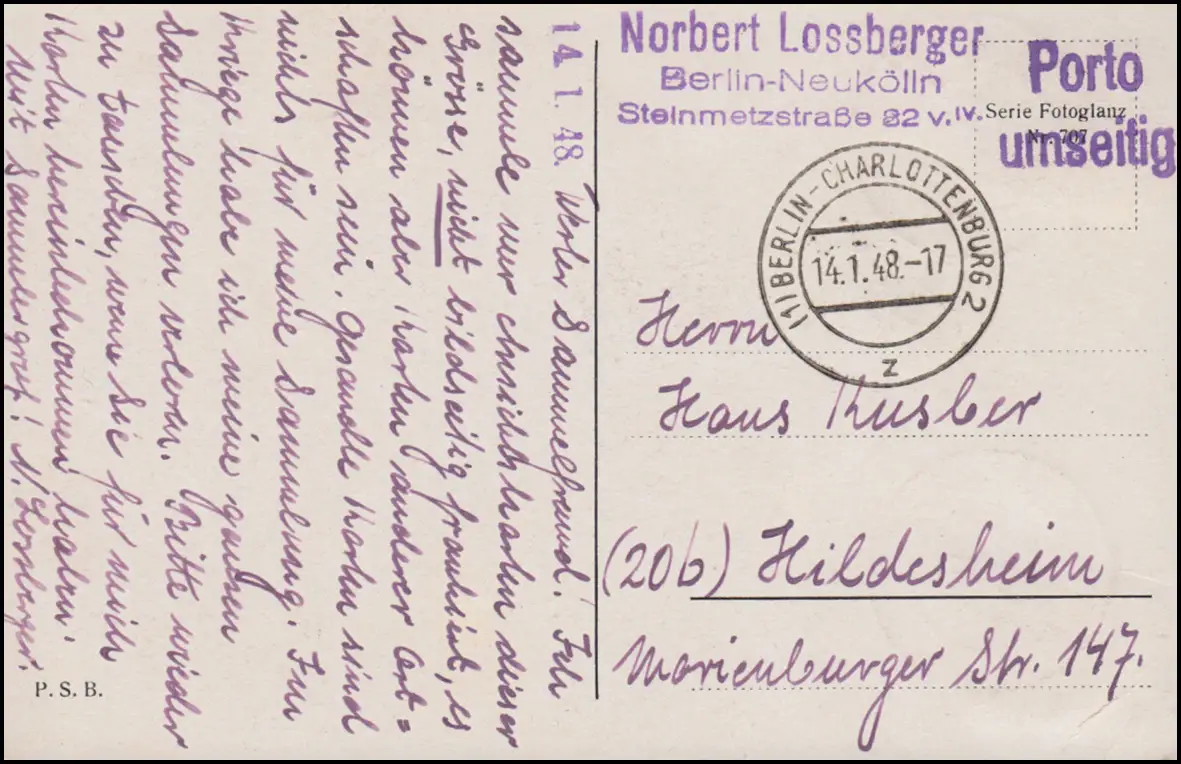 14 1. 48. Werter Sammelfreund! Ich
sammle nur Ansichtskarten dieser
Grösse, nicht bildseitig frankiert, es
können aber Karten anderer Ort=
schaften sein. Gesandte Karten sind
nichts für meine Sammlung. Im
Kriege habe ich meine ganzen
Sammlungen verloren. Bitte wieder
zu tauschen, wenn Sie für mich
Karten hereinbekommen haben.
Mit Sammlergruß! N. Lossberger.
P. S. B.
Norbert Lossberger
Berlin-Neukölln
Steinmetzstraße 82 v. IV.
Porto
umseitig
Serie Fotoglanz
Nr. 707
(1) BERLIN-CHARLOTTENBURG 2
14.1.48.-17
z
Herrn
Hans Kusber
(20b) Hildesheim
Marienburger Str. 147.